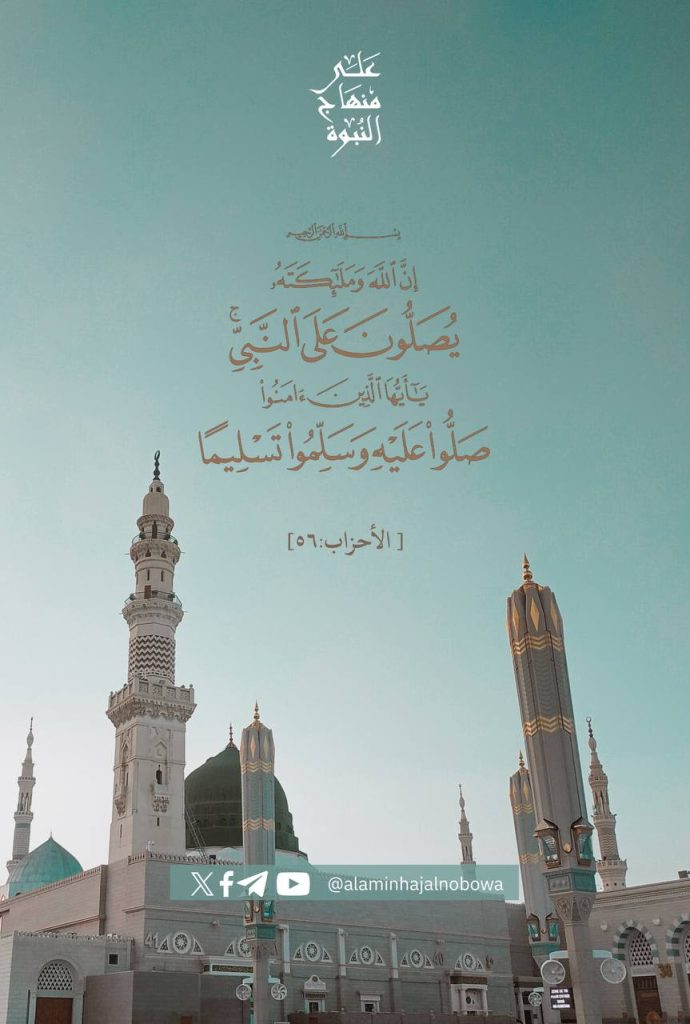 عَلَى
مِنهَاجِ
النُّبُوة
بِسْمِ ٱللَّهِ ٱلرَّحْمَٰنِ ٱلرَّحِيمِ
إِنَّ ٱللَّهَ وَمَلَـٰٓئِكَتَهُۥ
يُصَلُّونَ عَلَى ٱلنَّبِيِّۚ
يَـٰٓأَيُّهَا ٱلَّذِينَ ءَامَنُوا۟
صَلُّوا۟ عَلَيْهِ وَسَلِّمُوا۟ تَسْلِيمًا
[ الأحزاب:٥٦]
@alaminhajalnobowa
41